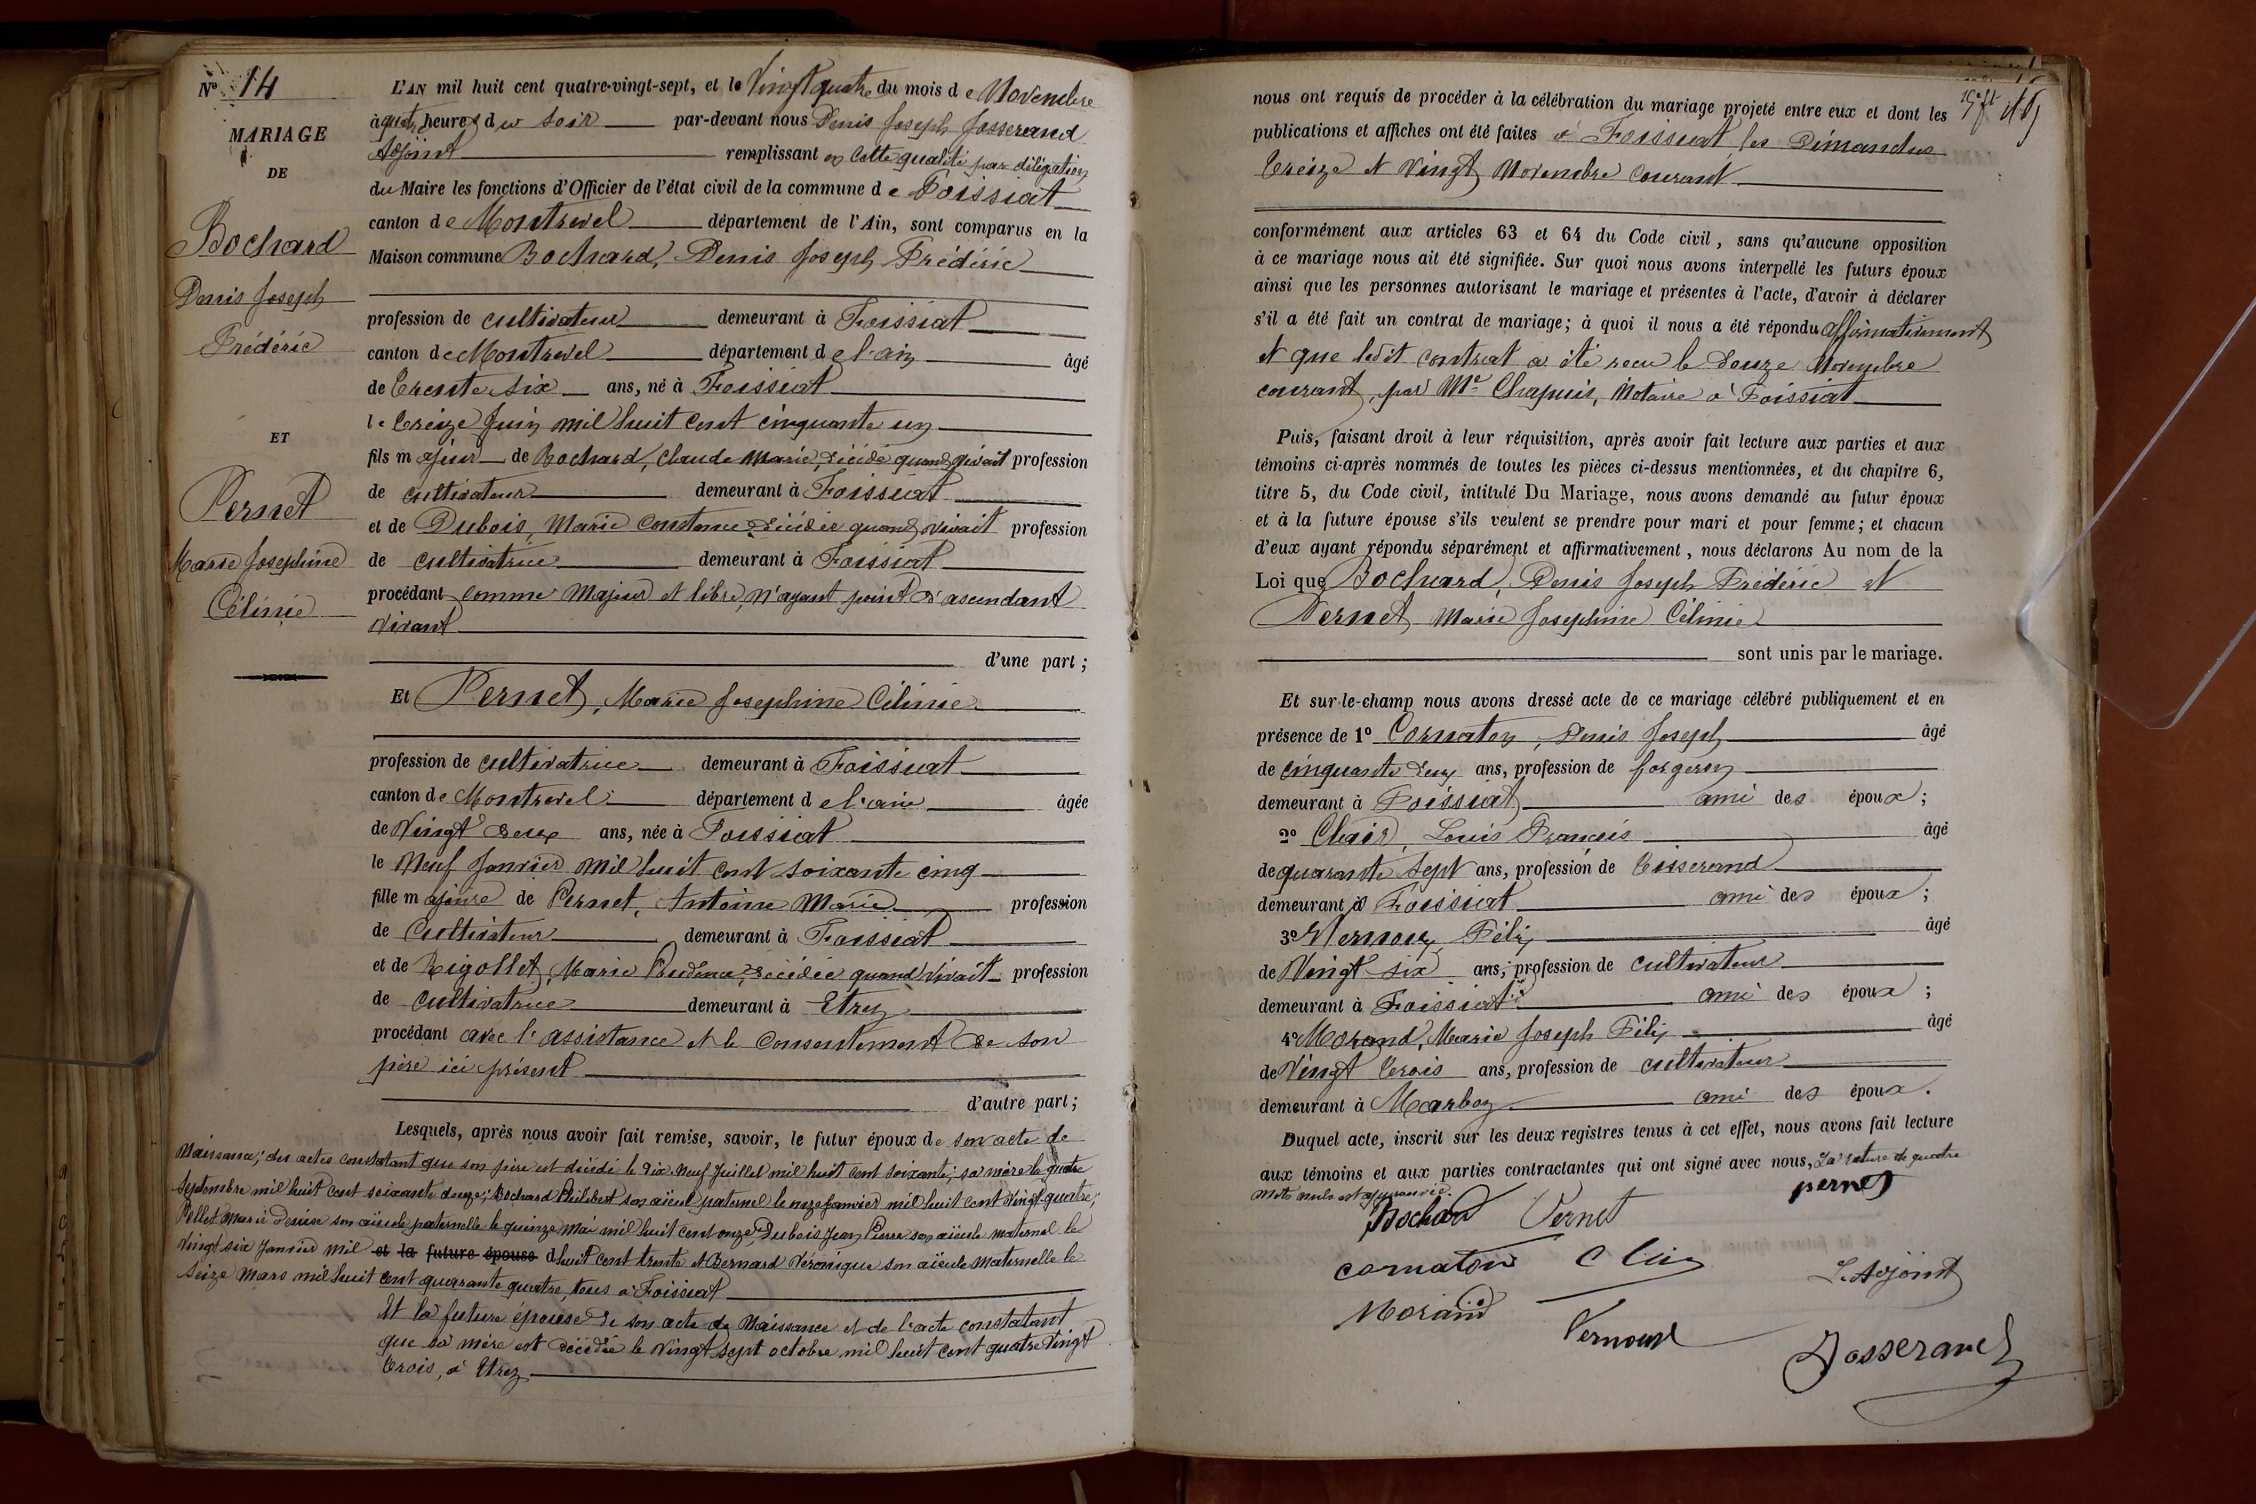 Nº 14
MARIAGE
DE
Bochard
Denis Joseph
Frédéric
ET
Pernet
Marie Josephine
Célinie
L'AN mil huit cent quatre-vingt-sept, et le Vingt quatre du mois de Novembre
à quatre heures du soir par-devant nous Denis Joseph Josserand
Adjoint remplissant en cette qualité par délégation
du Maire les fonctions d'Officier de l'état civil de la commune de Foissiat
canton de Montrevel département de l'Ain, sont comparus en la
Maison commune Bochard, Denis Joseph Frédéric
profession de cultivateur demeurant à Foissiat
canton de Montrevel département de l'ain âgé
de trente six ans, né à Foissiat
le treize Juin mil huit cent cinquante un
fils majeur de Bochard, Claude Marie, décédé quand vivait profession
de cultivateur demeurant à Foissiat
et de Dubois, Marie Constance décédée quand vivait profession
de cultivatrice demeurant à Foissiat
procédant comme Majeur et libre, n'ayant point d'ascendant
vivant
d'une part ;
Et Pernet, Marie Josephine Célinie
profession de cultivatrice demeurant à Foissiat
canton de Montrevel département de l'ain âgée
de Vingt deux ans, née à Foissiat
le Neuf Janvier mil huit cent soixante cinq
fille majeure de Pernet, Antoine Marie profession
de Cultivateur demeurant à Foissiat
et de Rigollet, Marie Prudence, décédée quand vivait profession
de cultivatrice demeurant à Etrez
procédant avec l'assistance et le Consentement de son
père ici présent
d'autre part ;
Lesquels, après nous avoir fait remise, savoir, le futur époux de son acte de
Naissance; des actes constatant que son père est décédé le dix Neuf Juillet mil huit cent soixante; sa mère le quatre
Septembre mil huit cent soixante douze; Bochard Philibert son aïeul paternel le onze Janvier mil huit cent vingt quatre;
Pellet Marie Denise son aïeule paternelle le quinze Mai mil huit cent onze, Dubois Jean Pierre son aïeule maternel le
Vingt six Janvier mil et la future épouse d huit cent trente et Bernard Véronique son aïeule Maternelle le
Seize Mars mil huit cent quarante quatre, tous à Foissiat
Et la future épouse de son acte de Naissance et de l'acte constatant
que sa mère est décédée le Vingt Sept octobre mil huit cent quatre Vingt
trois, à Etrez
nous ont requis de procéder à la célébration du mariage projeté entre eux et dont les
publications et affiches ont été faites à Foissiat les Dimanches
treize et Vingt Novembre courant
conformément aux articles 63 et 64 du Code civil, sans qu'aucune opposition
à ce mariage nous ait été signifiée. Sur quoi nous avons interpellé les futurs époux
ainsi que les personnes autorisant le mariage et présentes à l'acte, d'avoir à déclarer
s'il a été fait un contrat de mariage; à quoi il nous a été répondu affirmativement
et que ledit contrat a été recu le Douze Novembre
courant, par Me Chapuis, Notaire à Foissiat
Puis, faisant droit à leur réquisition, après avoir fait lecture aux parties et aux
témoins ci-après nommés de toutes les pièces ci-dessus mentionnées, et du chapitre 6,
titre 5, du Code civil, intitulé Du Mariage, nous avons demandé au futur époux
et à la future épouse s'ils veulent se prendre pour mari et pour femme; et chacun
d'eux ayant répondu séparément et affirmativement, nous déclarons Au nom de la
Loi que Bochard, Denis Joseph Frédéric et
Pernet Marie Josephine Célinie
sont unis par le mariage.
Et sur-le-champ nous avons dressé acte de ce mariage célébré publiquement et en
présence de 1º Cornaton, Denis Joseph âgé
de cinquante deux ans, profession de forgeron
demeurant à Foissiat ami des époux ;
2º Clair, Louis Francis âgé
de quarante sept ans, profession de tisserand
demeurant à Foissiat ami des époux ;
3º Vernoux, Félix âgé
de Vingt six ans, profession de cultivateur
demeurant à Foissiat ami des époux ;
4º Morand, Marie Joseph Félix âgé
de Vingt trois ans, profession de cultivateur
demeurant à Marboz ami des époux.
Duquel acte, inscrit sur les deux registres tenus à cet effet, nous avons fait lecture
aux témoins et aux parties contractantes qui ont signé avec nous, La rature de quatre
mots nuls est approuvée.
pernet
Bochard Pernet
cornaton Clair
L'Adjoint
Morand
Vernoux
Josserand